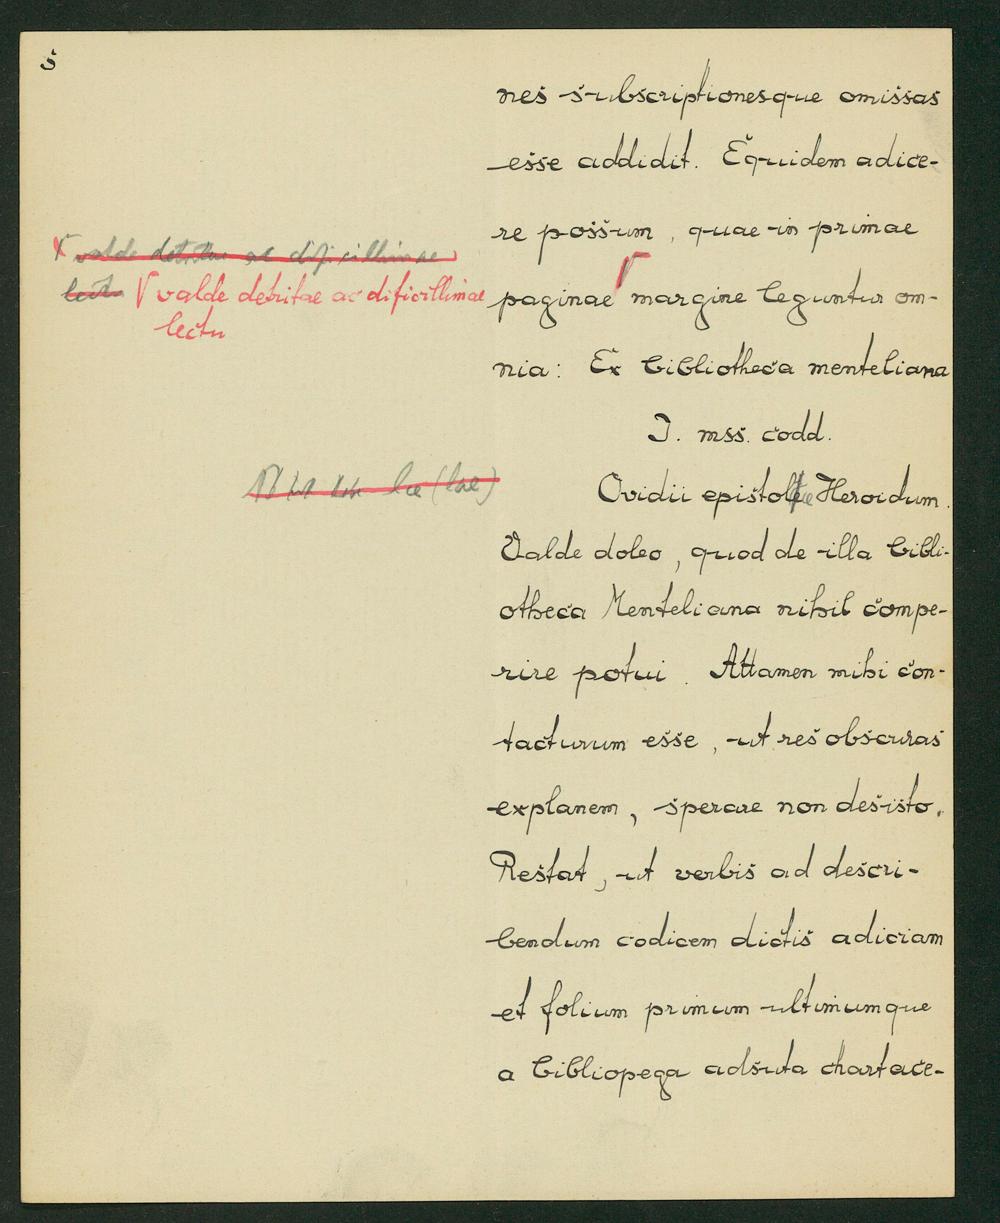 5
nes subscriptionesque omissas
esse addidit. Equidem adice-
re possum, quae in primae
paginae margine leguntur om-
nia: Ex bibliotheca menteliana
I. mss. codd.
Ovidii epistolae Heroidum.
Valde doleo, quod de illa bibli-
otheca Menteliana nihil compe-
rire potui. Attamen mihi con-
tacturum esse, ut res obscuras
explanem, sperare non desisto.
Restat, ut verbis ad descri-
bendum codicem dictis adiciam
et folium primum ultimumque
a bibliopega adsuta chartace-
valde detritae ac dificillimae
lectu
valde detritae ac dificillimae
lectu